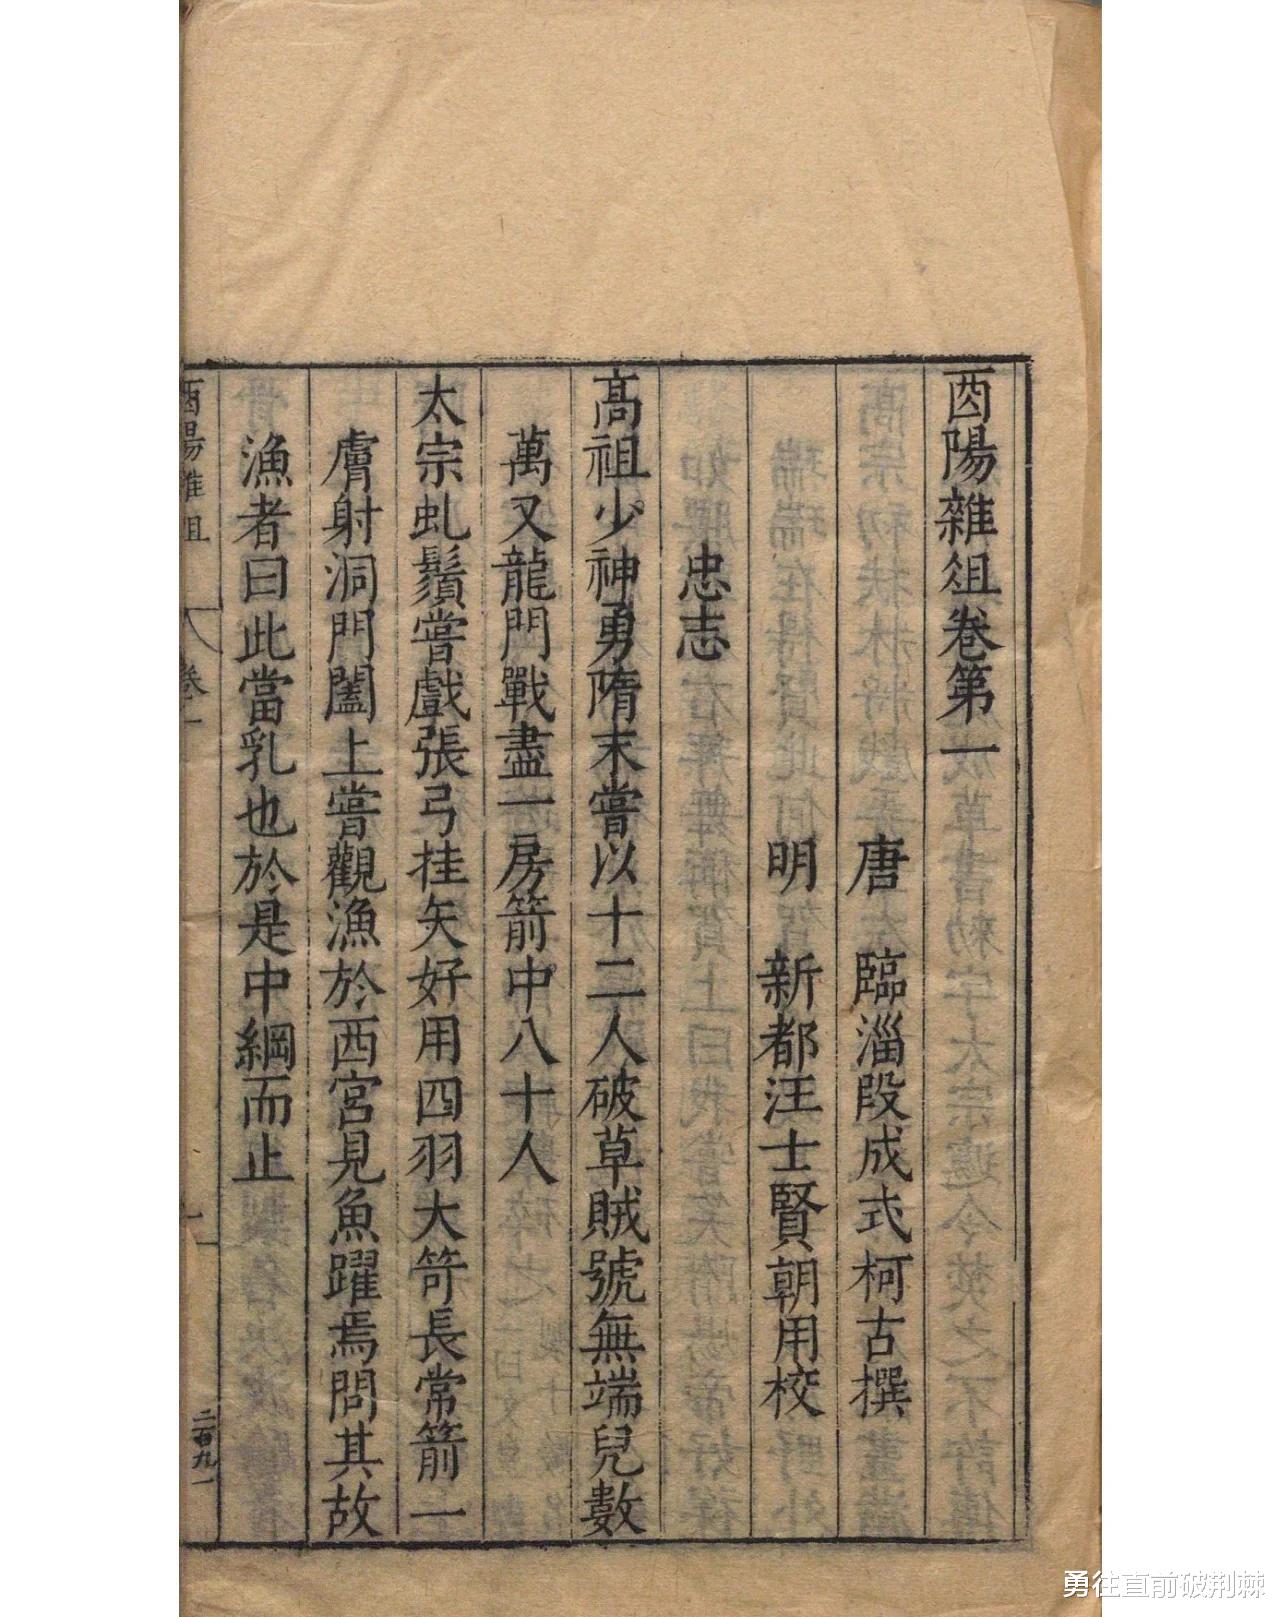 酉陽雜俎卷第一
唐　臨淄段成式柯古撰
明　新都汪士賢朝用校
忠志
高祖少神勇隋末嘗以十二人破草賊號無端兒數
萬又龍門戰盡一房箭中八十人
太宗虬鬚嘗戲張弓挂矢好用四羽大笴長常箭一
膚射洞門闔上嘗觀漁於西宮見魚躍焉問其故
漁者曰此當乳也於是中綱而止
酉陽雜俎
卷一
一
二百九一
勇往直前破荆棘